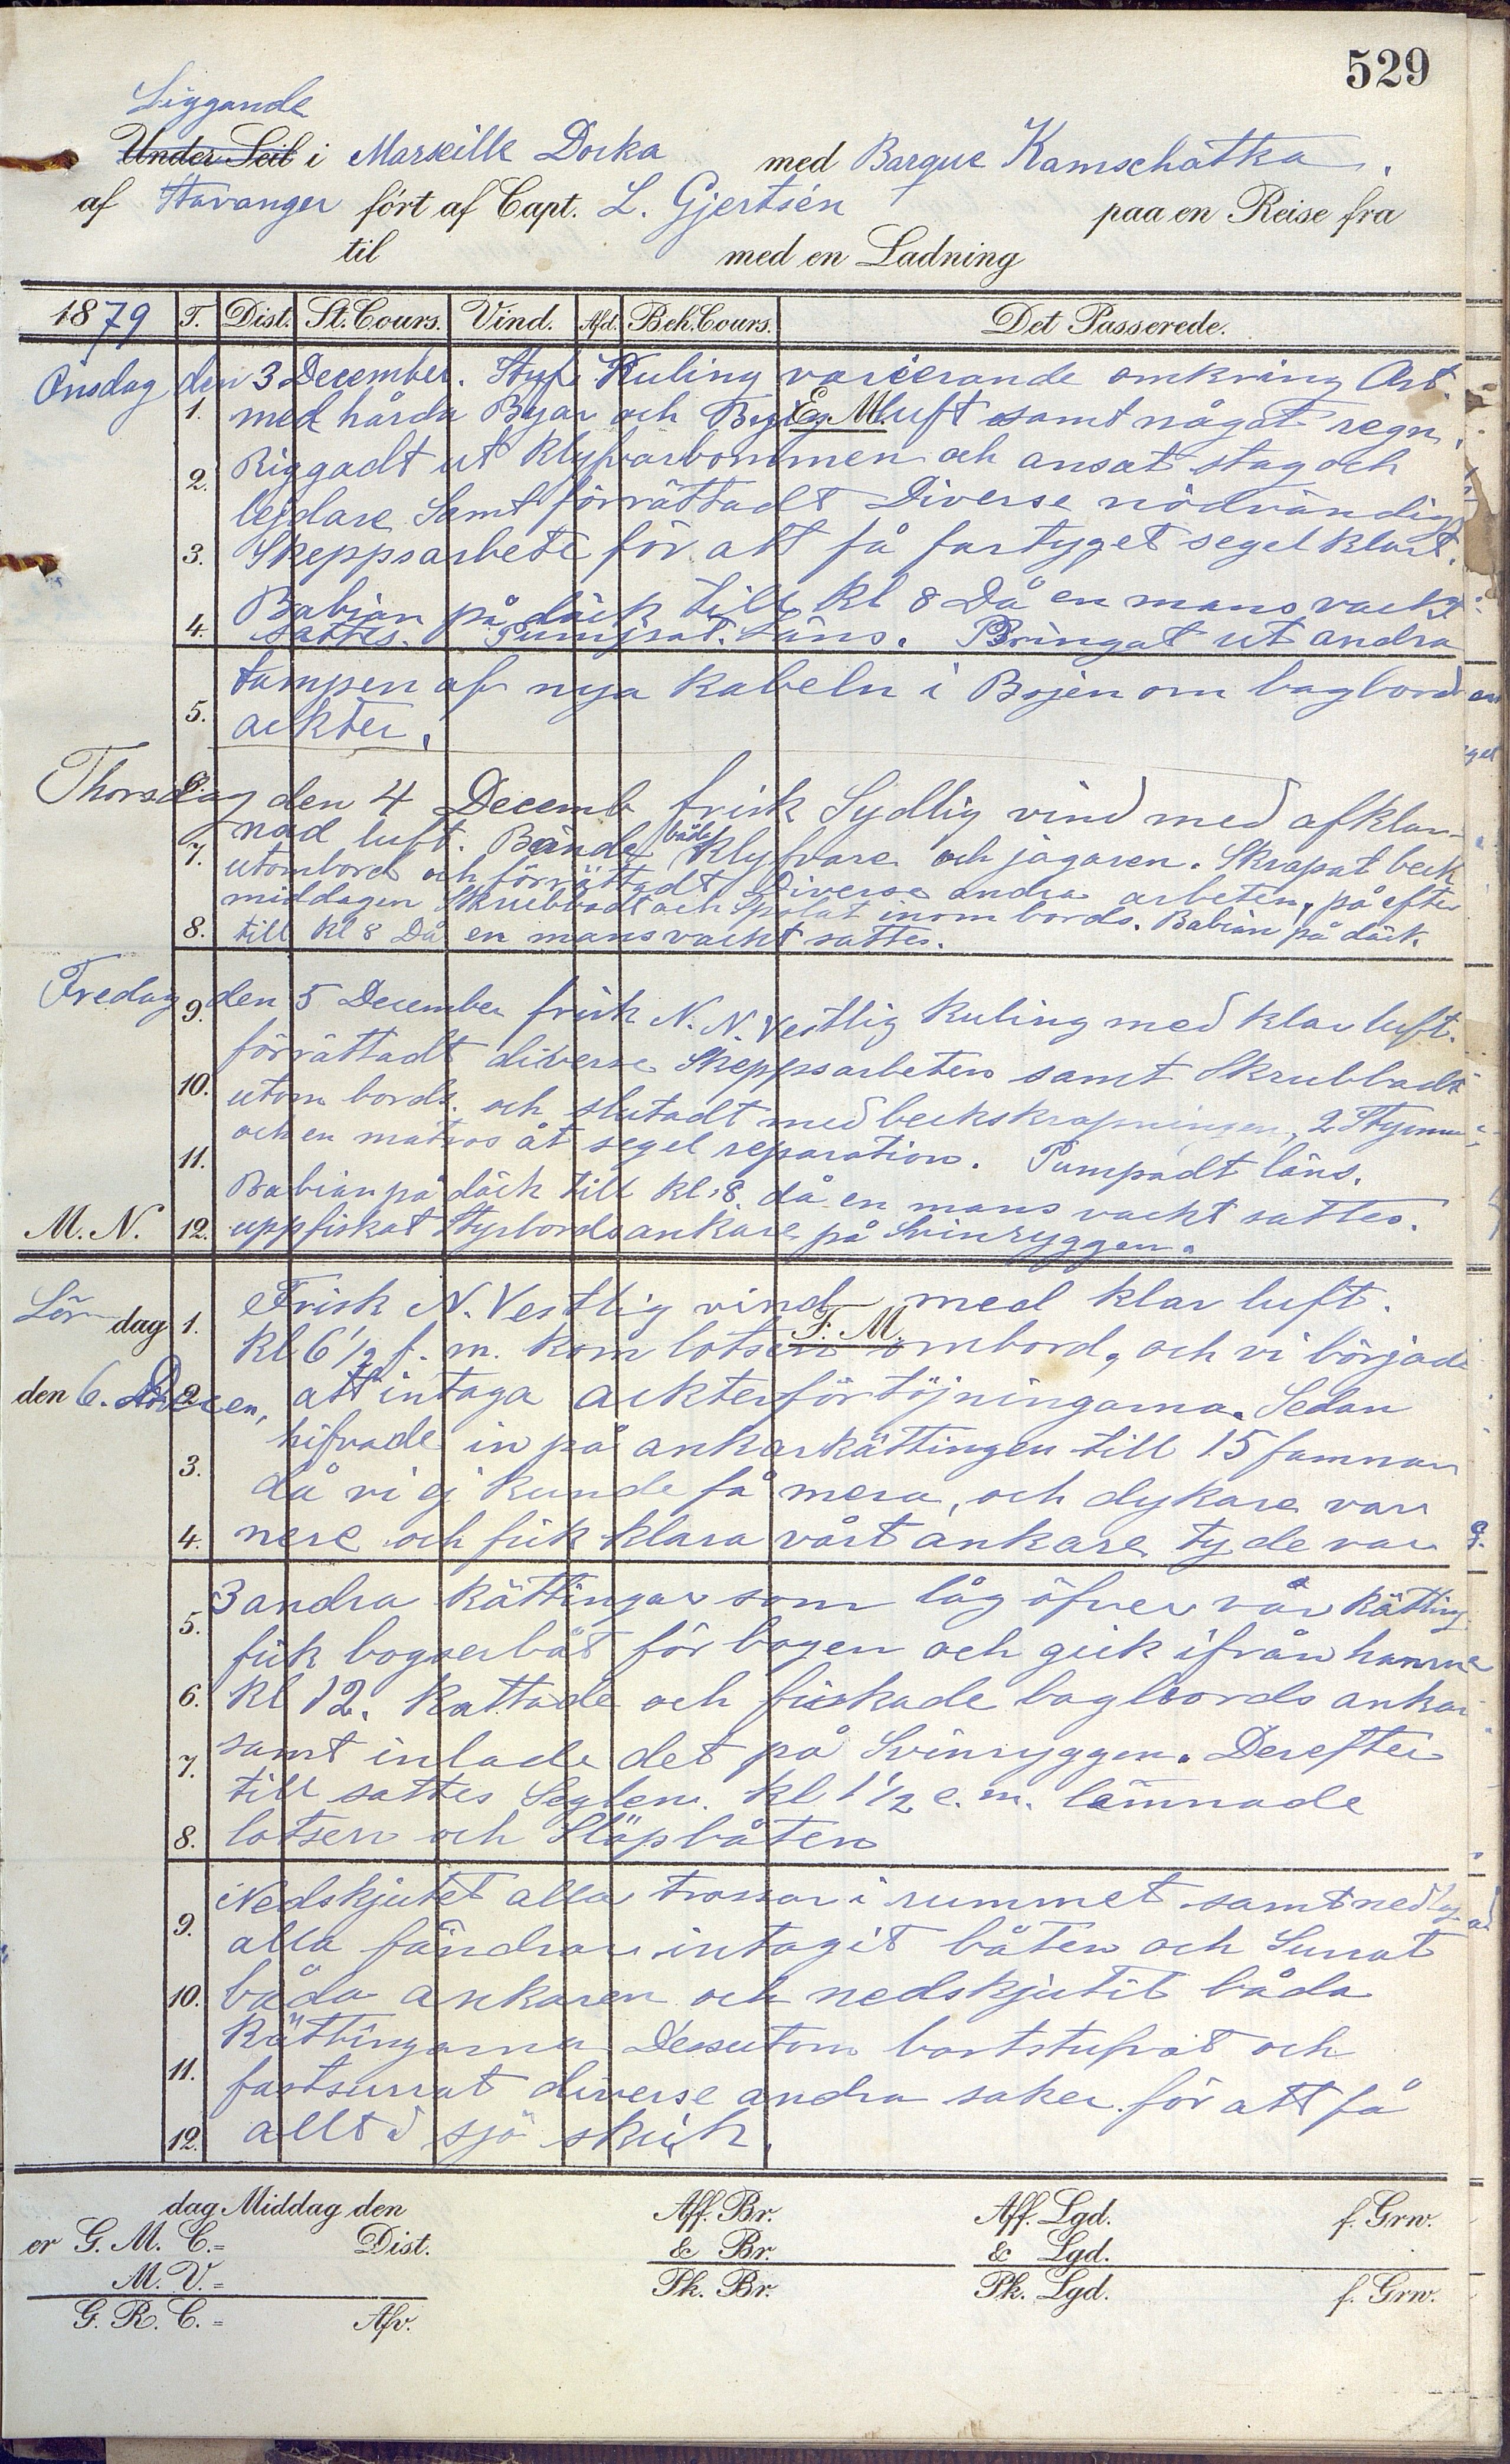 529
Liggande
Under Seil i Marseille Docka med Barque Kamschatka.
af Stavanger fört af Capt. L. Gjertsén paa en Reise fra
til med en Ladning
1879 T. Dist. St. Cours. Vind. Afd. Beh. Cours. Det Passerede.
Onsdag den 3 December. Styf Kuling varierande omkring Ost
E. M.
1. med hårda Byar och luft samt något regn.
2. Riggadt ut Klyfvarbommen och ansat stag och
lejdare Samt förrättadt Diverse nödvändig
3. Skeppsarbete för att få fartyget segel klart.
Babian på däck till Kl 8 Då en mans vackt
4. sattes. Pumpat. Läns. Bringat ut andra
tampen af nya kabeln i Bojen om bagbord
5. ackter.
6. Thorsdag den 4 Decemb frisk Sydlig vind med afklar-
nad luft. Bände båda Klyfvare och jagaren. Skrapat beck
7. utombord och förrättadt Diverse andra arbeten, på efter
middagen Skrubbadt och Spolat inom bords. Babian på däck.
8. till Kl 8 Då en mans vackt sattes.
Fredag den 5 December frisk N. N. Vestlig Kuling med klar luft.
9. förrättadt diverse Skeppsarbeten samt Skrubbadt
10. utom bords. och slutadt med beckskrapningen, 2 Styrmn
och en matros åt segel reparation. Pumpadt läns.
11. Babian på däck till Kl. 8 då en mans vackt sattes.
M. N. 12. uppfiskat Styrbordsankare på Svinryggen.
Lördag 1. Frisk N. Vestlig vind med klar luft.
F. M.
Kl 6 1/2 f. m. kom lotsen ombord, och vi började
den 6. Decem, 2. att intaga ackterförtöjningarna. Sedan
hifvade in på ankarkättingen till 15 famnar
3. då vi ej kunde få mera, och dykare var
4. nere och fick klara vårt ankare ty de var
3 andra kättingar som låg öfver vår kätting
5. fick bogserbåt för bogen och gick ifrån hamne
6. Kl 12. Kattade och fiskade bagbords ankar
samt inlade det på Svinryggen. Derefter
7. till sattes Seglen. Kl 1 1/2 e. m. lämnade
8. lotsen och Släpbåten
Nedskjutet alla trossar i rummet samt nedlagd
9. alla fändrar intagit båten och Surrat
10. båda ankaren och nedskjutit båda
Kättingarna Dessutom bortstufvat och
11. fastsurrat diverse andra saker för att få
12. allt i sjö skick.
dag Middag den Aff. Br. Aff. Lgd. f. Grw.
er G. M. C.= Dist. & Br. & Lgd.
M. V.= Pk. Br. Pk. Lgd. f. Grw.
G. R. C.= Afv.